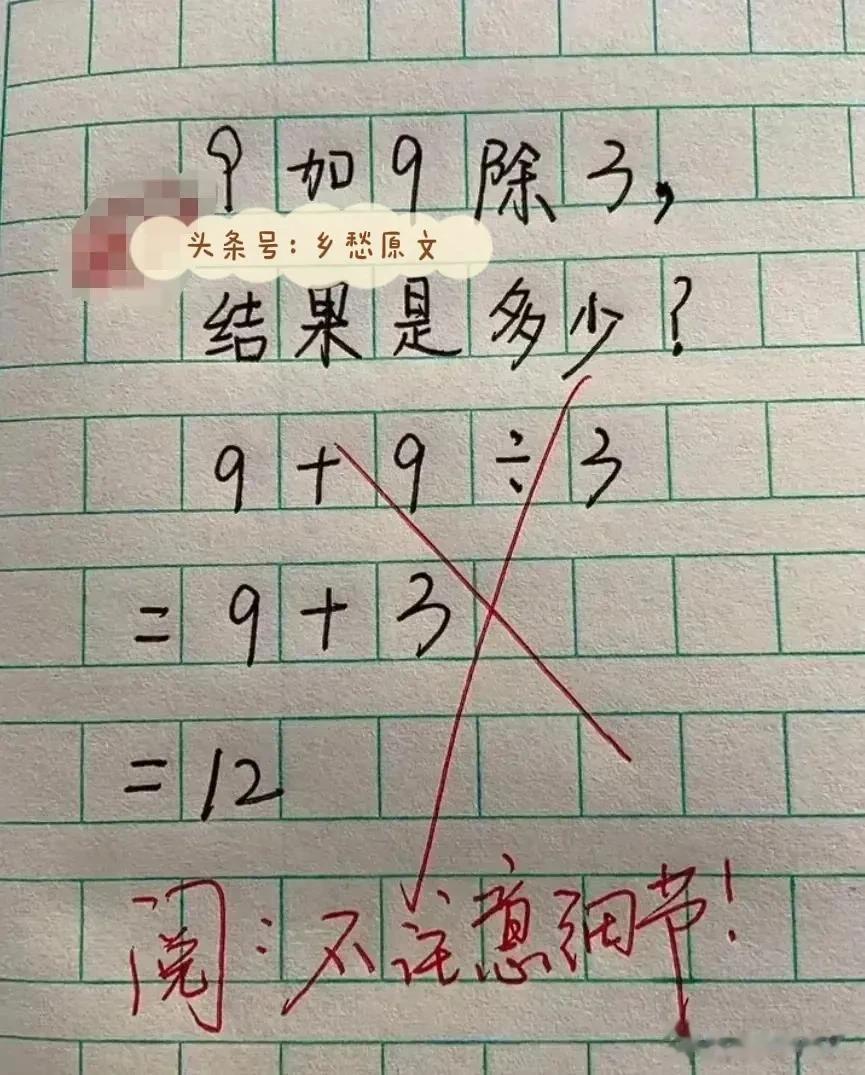 9加9除3,
头条号:乡愁原文
结果是多少?
9+9÷3
=9+3
=12
阅:不注意细节!